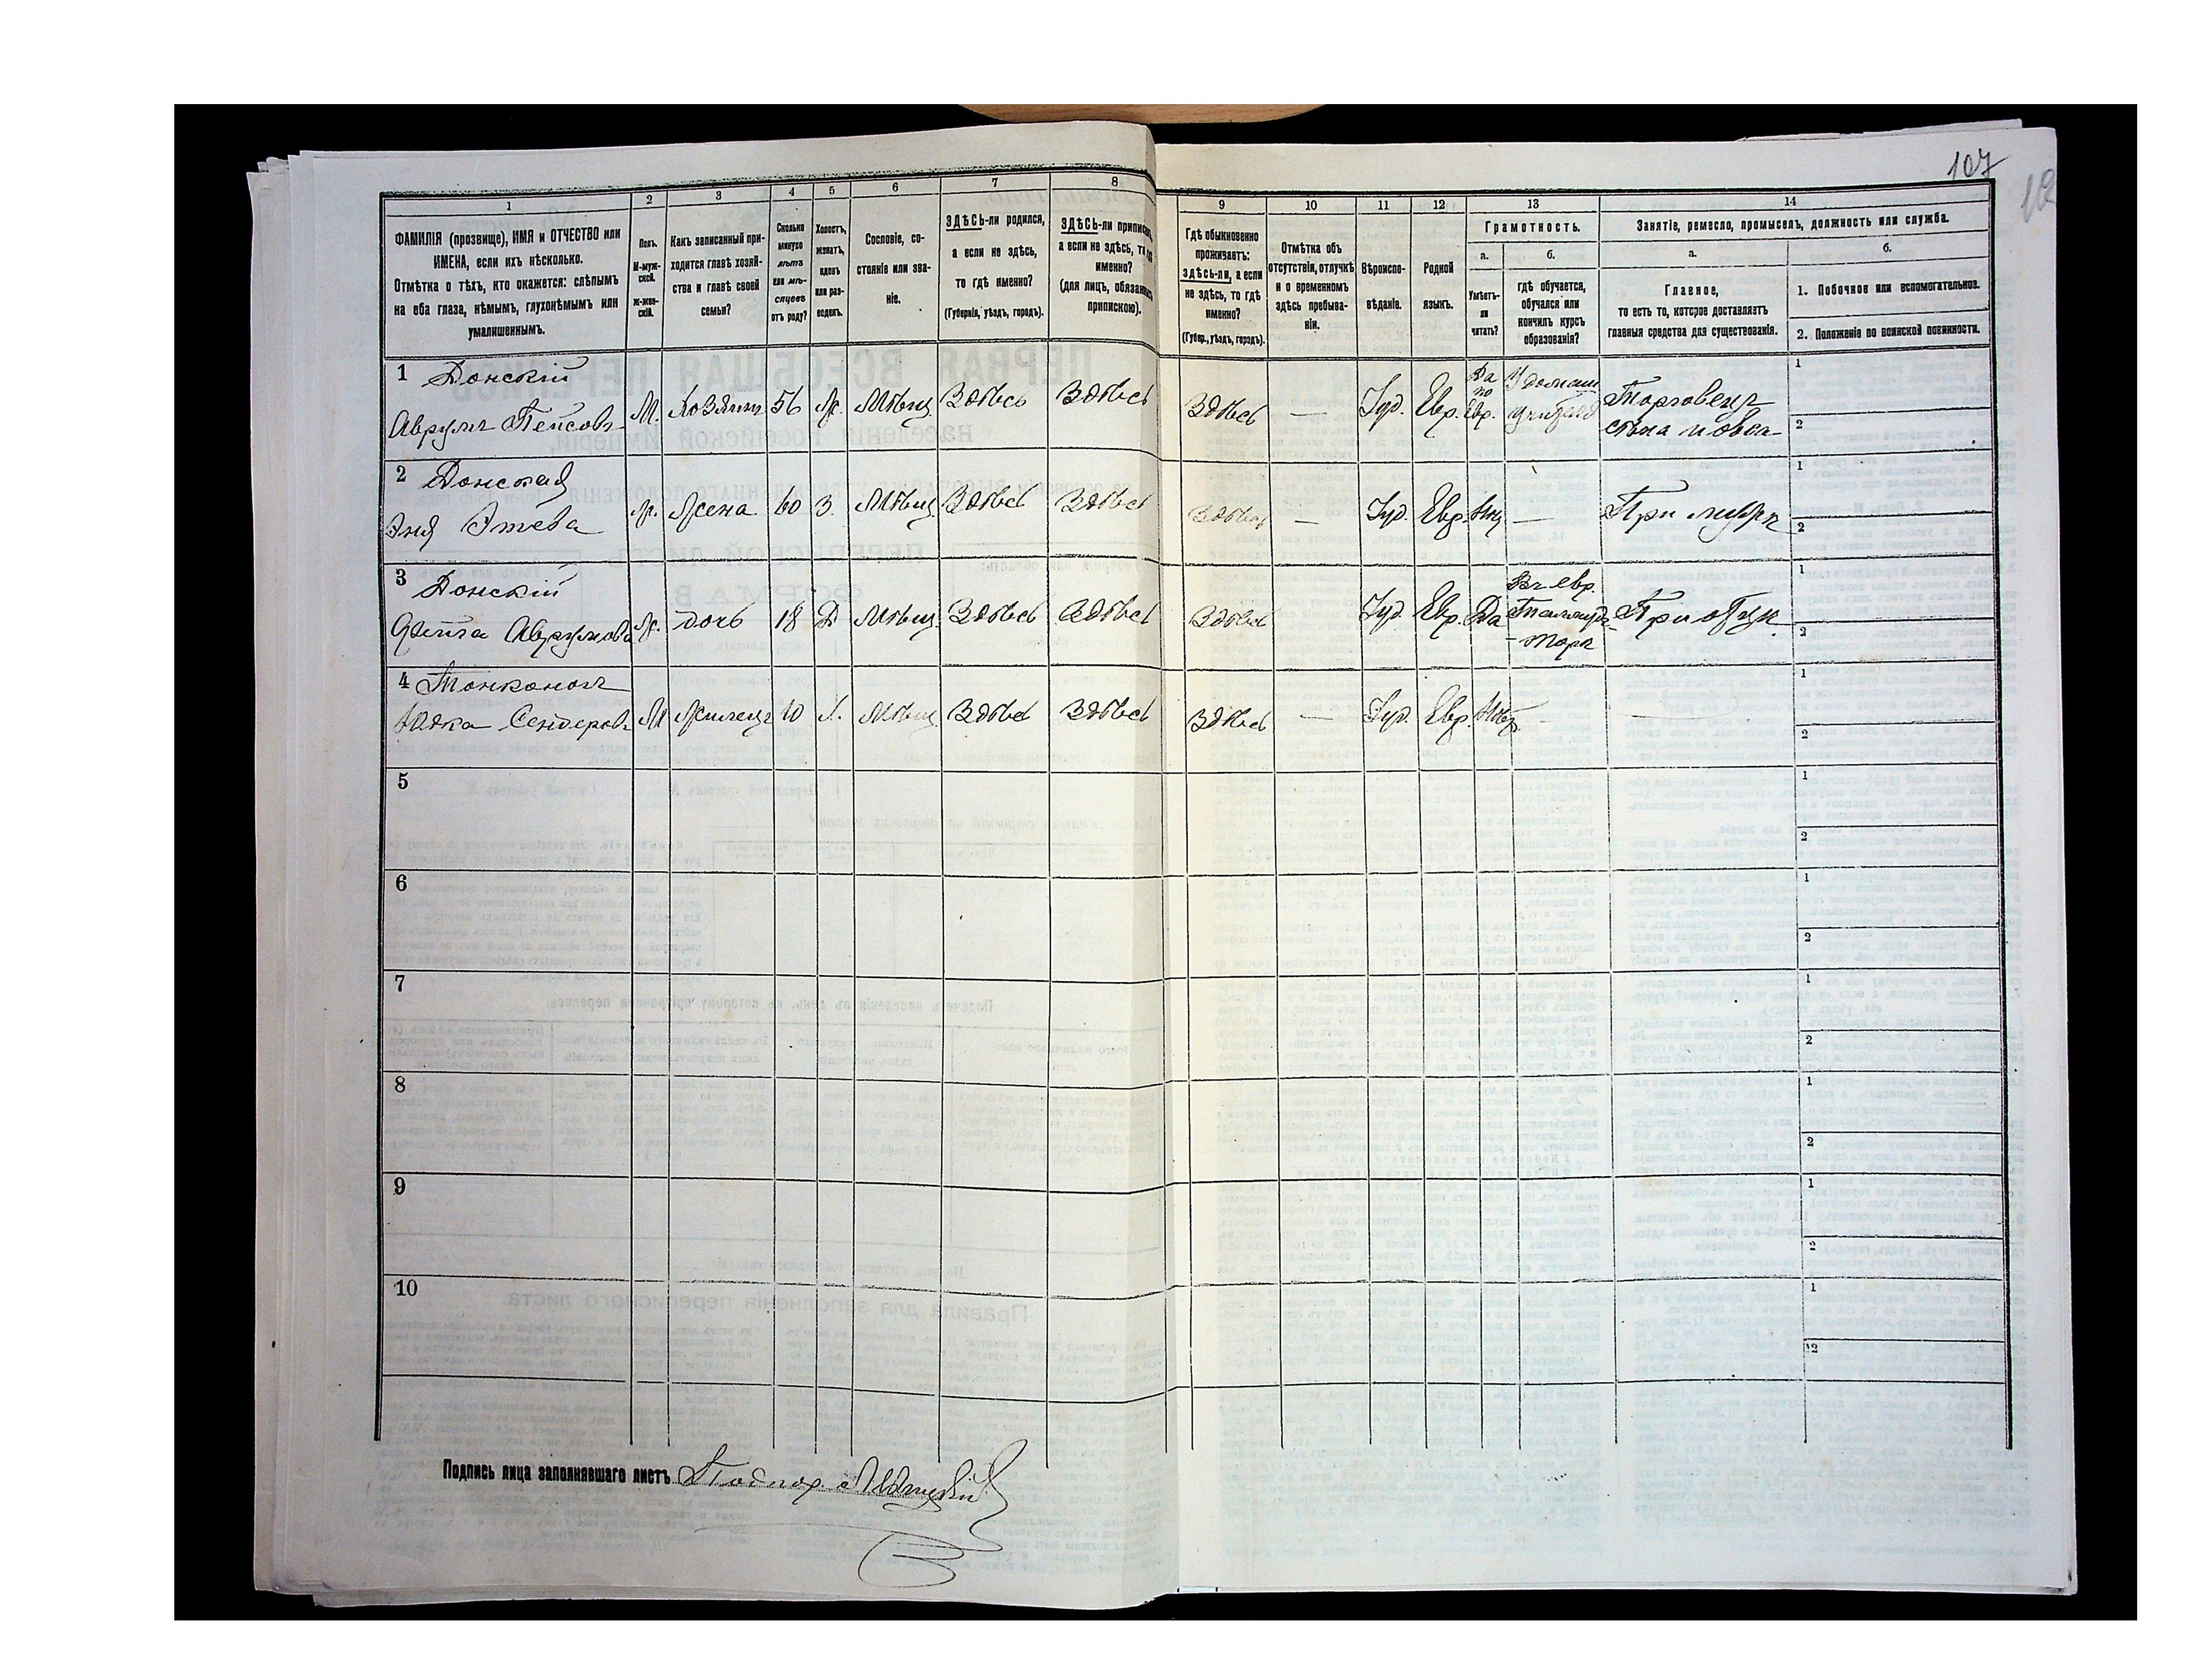 107
1
2
3
4
5
6
7
8
9
10
11
12
13
14
ФАМИЛІЯ (прозвище), ИМЯ и ОТЧЕСТВО или
ИМЕНА, если ихъ нѣсколько.
Отмѣтка о тѣхъ, кто окажется: слѣпымъ
на оба глаза, нѣмымъ, глухонѣмымъ или
умалишеннымъ.
Полъ.
М-муж-
ской.
ж-жен-
скій.
Какъ записанный при-
ходится главѣ хозяй-
ства и главѣ своей
семьи?
Сколько
минуло
лѣтъ
или мѣ-
сяцевъ
отъ роду?
Холостъ,
женатъ,
вдовъ
или раз-
веденъ.
Сословіе, со-
стояніе или зва-
ніе.
ЗДѢСЬ-ли родился,
а если не здѣсь,
то гдѣ именно?
(Губернія, уѣздъ, городъ).
ЗДѢСЬ-ли приписанъ,
а если не здѣсь, то гдѣ
именно?
(для лицъ, обязанныхъ
припискою).
Гдѣ обыкновенно
проживаетъ:
здѣсь-ли, а если
не здѣсь, то гдѣ
именно?
(Губер., уѣздъ, городъ).
Отмѣтка объ
отсутствіи, отлучкѣ
и о временномъ
здѣсь пребыва-
ніи.
Вѣроиспо-
вѣданіе.
Родной
языкъ.
Грамотность.
а.
б.
Умѣетъ-
ли
читать?
гдѣ обучается,
обучался или
кончилъ курсъ
образованія?
Занятіе, ремесло, промыселъ, должность или служба.
а.
б.
Главное,
то есть то, которое доставляетъ
главныя средства для существованія.
1. Побочное или вспомогательное.
2. Положеніе по воинской повинности.
1 Донскій
Аврумъ Пейсовъ М. Хозяинъ 56 Ж. Мѣщ. Здѣсь Здѣсь Здѣсь — Іуд. Евр. Да по Евр. У домаш учителя Торговецъ сѣна и овса 1 2
2 Донская
Эня Этева Ж. Жена 60 З. Мѣщ. Здѣсь Здѣсь Здѣсь — Іуд. Евр. Нѣт — При мужѣ 1 2
3 Донскій
Фейга Аврумова Ж. дочь 18 Д Мѣщ. Здѣсь Здѣсь Здѣсь Іуд. Евр. Да Въ евр. При отцѣ 1 2
4 Тонконогъ
Юдка Сендеровъ М Жилецъ 10 Х. Мѣщ. Здѣсь Здѣсь Здѣсь — Іуд. Евр. Нѣт 1 2
5 1 2
6 1 2
7 1 2
8 1 2
9 1 2
10 1 2
Подпись лица заполнявшаго листъ